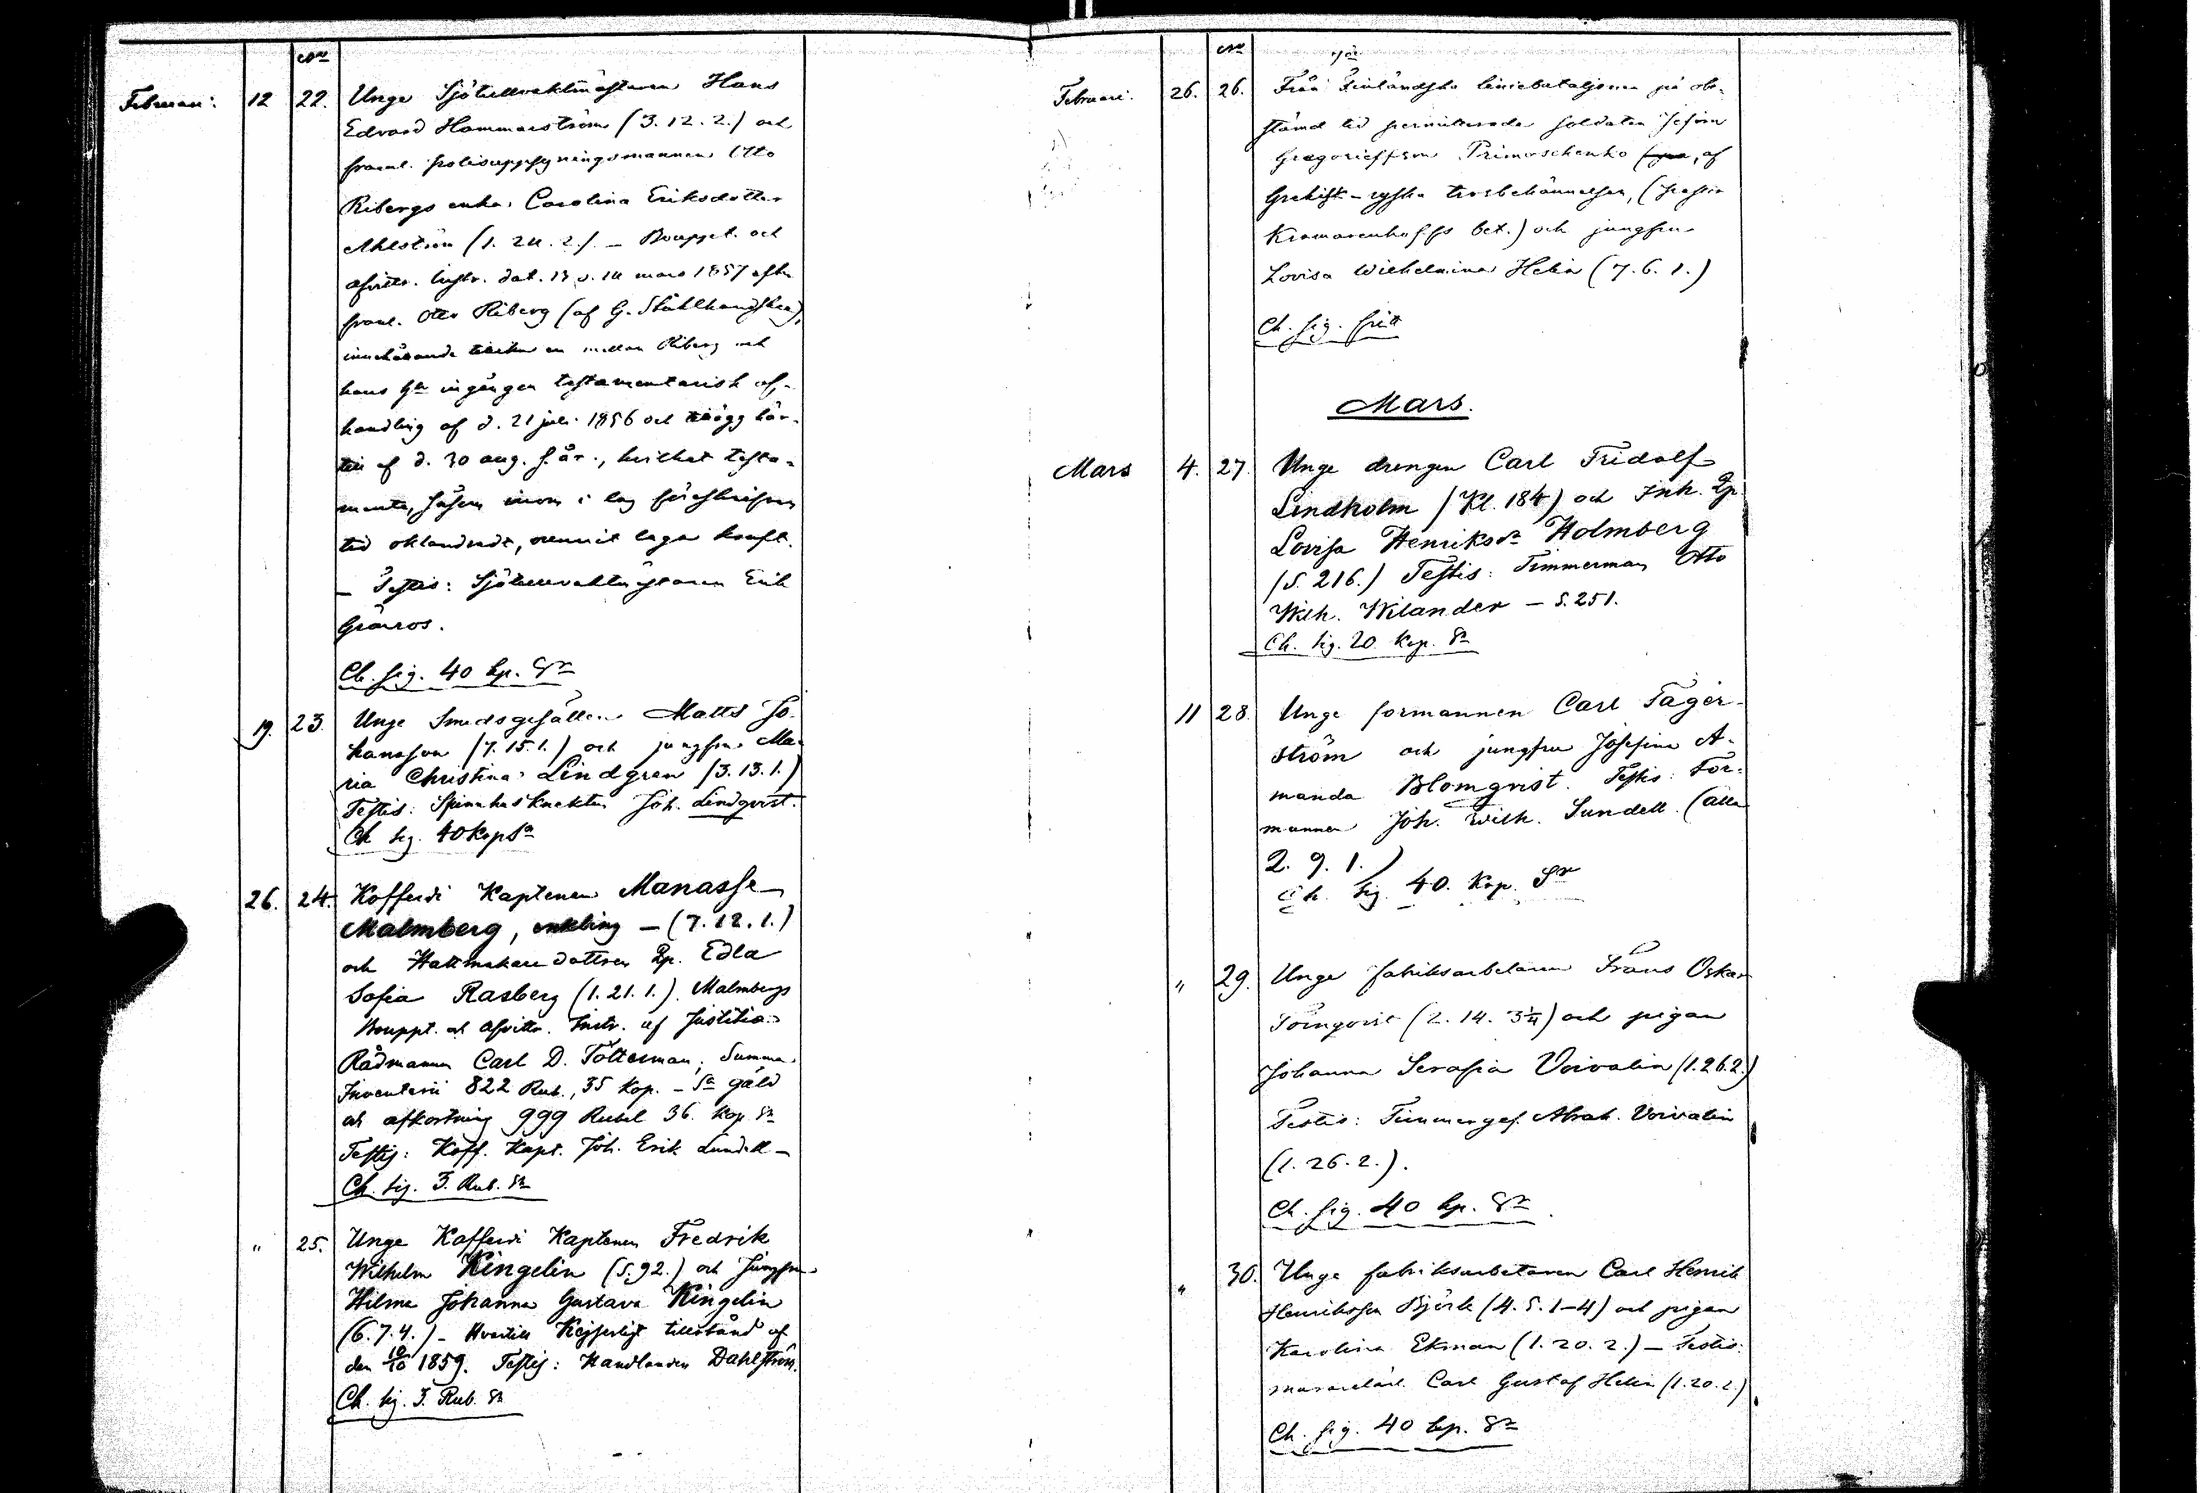 No
Februari: 12 22. Unge Sjötullvaktmästaren Hans
Edvard Hammarström (3.12.2.) och
framl. polisuppsyningsmannen Otto
Ribergs enka Carolina Eriksdotter
Ahlström (1. 24. 2.). – Bouppt. och
afvittr. instr. dat. 13 o. 14 mars 1857 efter
framl. Otto Riberg (af G. Stålhandske),
innehårande en mellan Riberg och
hans ingången testamentarisk af-
handling af d. 21 juli 1856 och här-
till af d. 30 aug. s. år., hvilket testa-
mente, såsom inom i lag föreskrifven
tid oklandradt, vunnit laga kraft.
– Testis: Sjötullvaktmästaren Erik
Grönros.
Ch. sig. 40 kp. Sr
19. 23. Unge Smedsgesällen Matts Jo-
hansson (7.15.1.) och jungfru Ma-
ria Christina Lindgren (3.13.1.)
Testis: Spinnhusknekten Joh. Lindqvist.
Ch sig. 40 kop Sr
26. 24. Kofferdi Kaptenen Manasse
Malmberg, enkling – (7.12.1.)
och Hattmakaredottren Edla
Sofia Rasberg (1.21.1.). Malmbergs
Bouppt. och afvittr. Instr. af Justitiæ-
Rådmannen Carl D. Tölterman; Summa
Inventarii 822 Rub., 35 kop. – Sr gäld
och afkortning 999 Rubel 36. kop. Sr
Testis: Koff. Kapt. Joh. Erik Lundell –
Ch. sig. 3. Rub. Sr
" 25. Unge Kofferdi Kaptenen Fredrik
Wilhelm Kingelin (S. 92.) och Jungfru
Hilma Johanna Gustava Kingelin
(6.7.4.) – Hvartill Kejserligt tillstånd af
den 10/10 1859. Testis: Handlanden Dahlström.
Ch. sig. 3. Rub. Sr
No
Februari. 26. 26. Från Finländska liniebataljonen på obe-
stämd tid permitterade soldaten
Gregorieffson Primoschenko , af
Grekisk-ryska trosbekännelsen, (
bet.) och jungfru
Lovisa Wilhelmina Helin (7.6.1.)
Ch. sig. fritt
Mars.
Mars 4. 27. Unge drengen Carl Fridolf
Lindholm (Kl. 184) och Inh.
Lovisa Henriksdr Holmberg
(S. 216.) Testis: Timmerman Otto
Wilh. Wilander – S. 251.
Ch. sig. 20. Kop. Sr
11 28. Unge formannen Carl Fager-
ström och jungfru Josefina A-
manda Blomqvist. Testis: For-
mannen Joh. Wilh. Sundell. (alla
2. 9. 1.)
Ch. sig. 40. Kop. Sr
" 29. Unge fabriksarbetaren Frans Oskar
Törnqvist (2. 14. 3¼) och pigan
Johanna Serafia Voivalin (1.26.2.)
Testis: Timmerges. Abrah. Voivalin
(1. 26. 2.).
Ch. sig. 40 kp. Sr.
" 30. Unge fabriksarbetaren Carl Henrik
Henriksson Björk (4. 5. 1–4) och pigan
Karolina Ekman (1. 20. 2.) – Testis:
Carl Gustaf Helin (1.20.2.)
Ch. sig. 40 kp. Sr